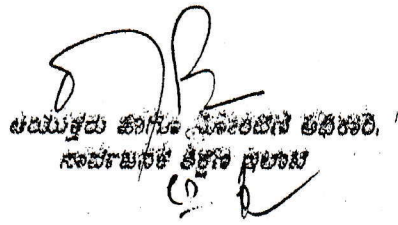 ಆಯುಕ್ತರು ಹಾಗೂ ನೋಂದಣಿ ಅಧಿಕಾರಿ,
ಸಾರ್ವಜನಿಕ ಶಿಕ್ಷಣ ಇಲಾಖೆ